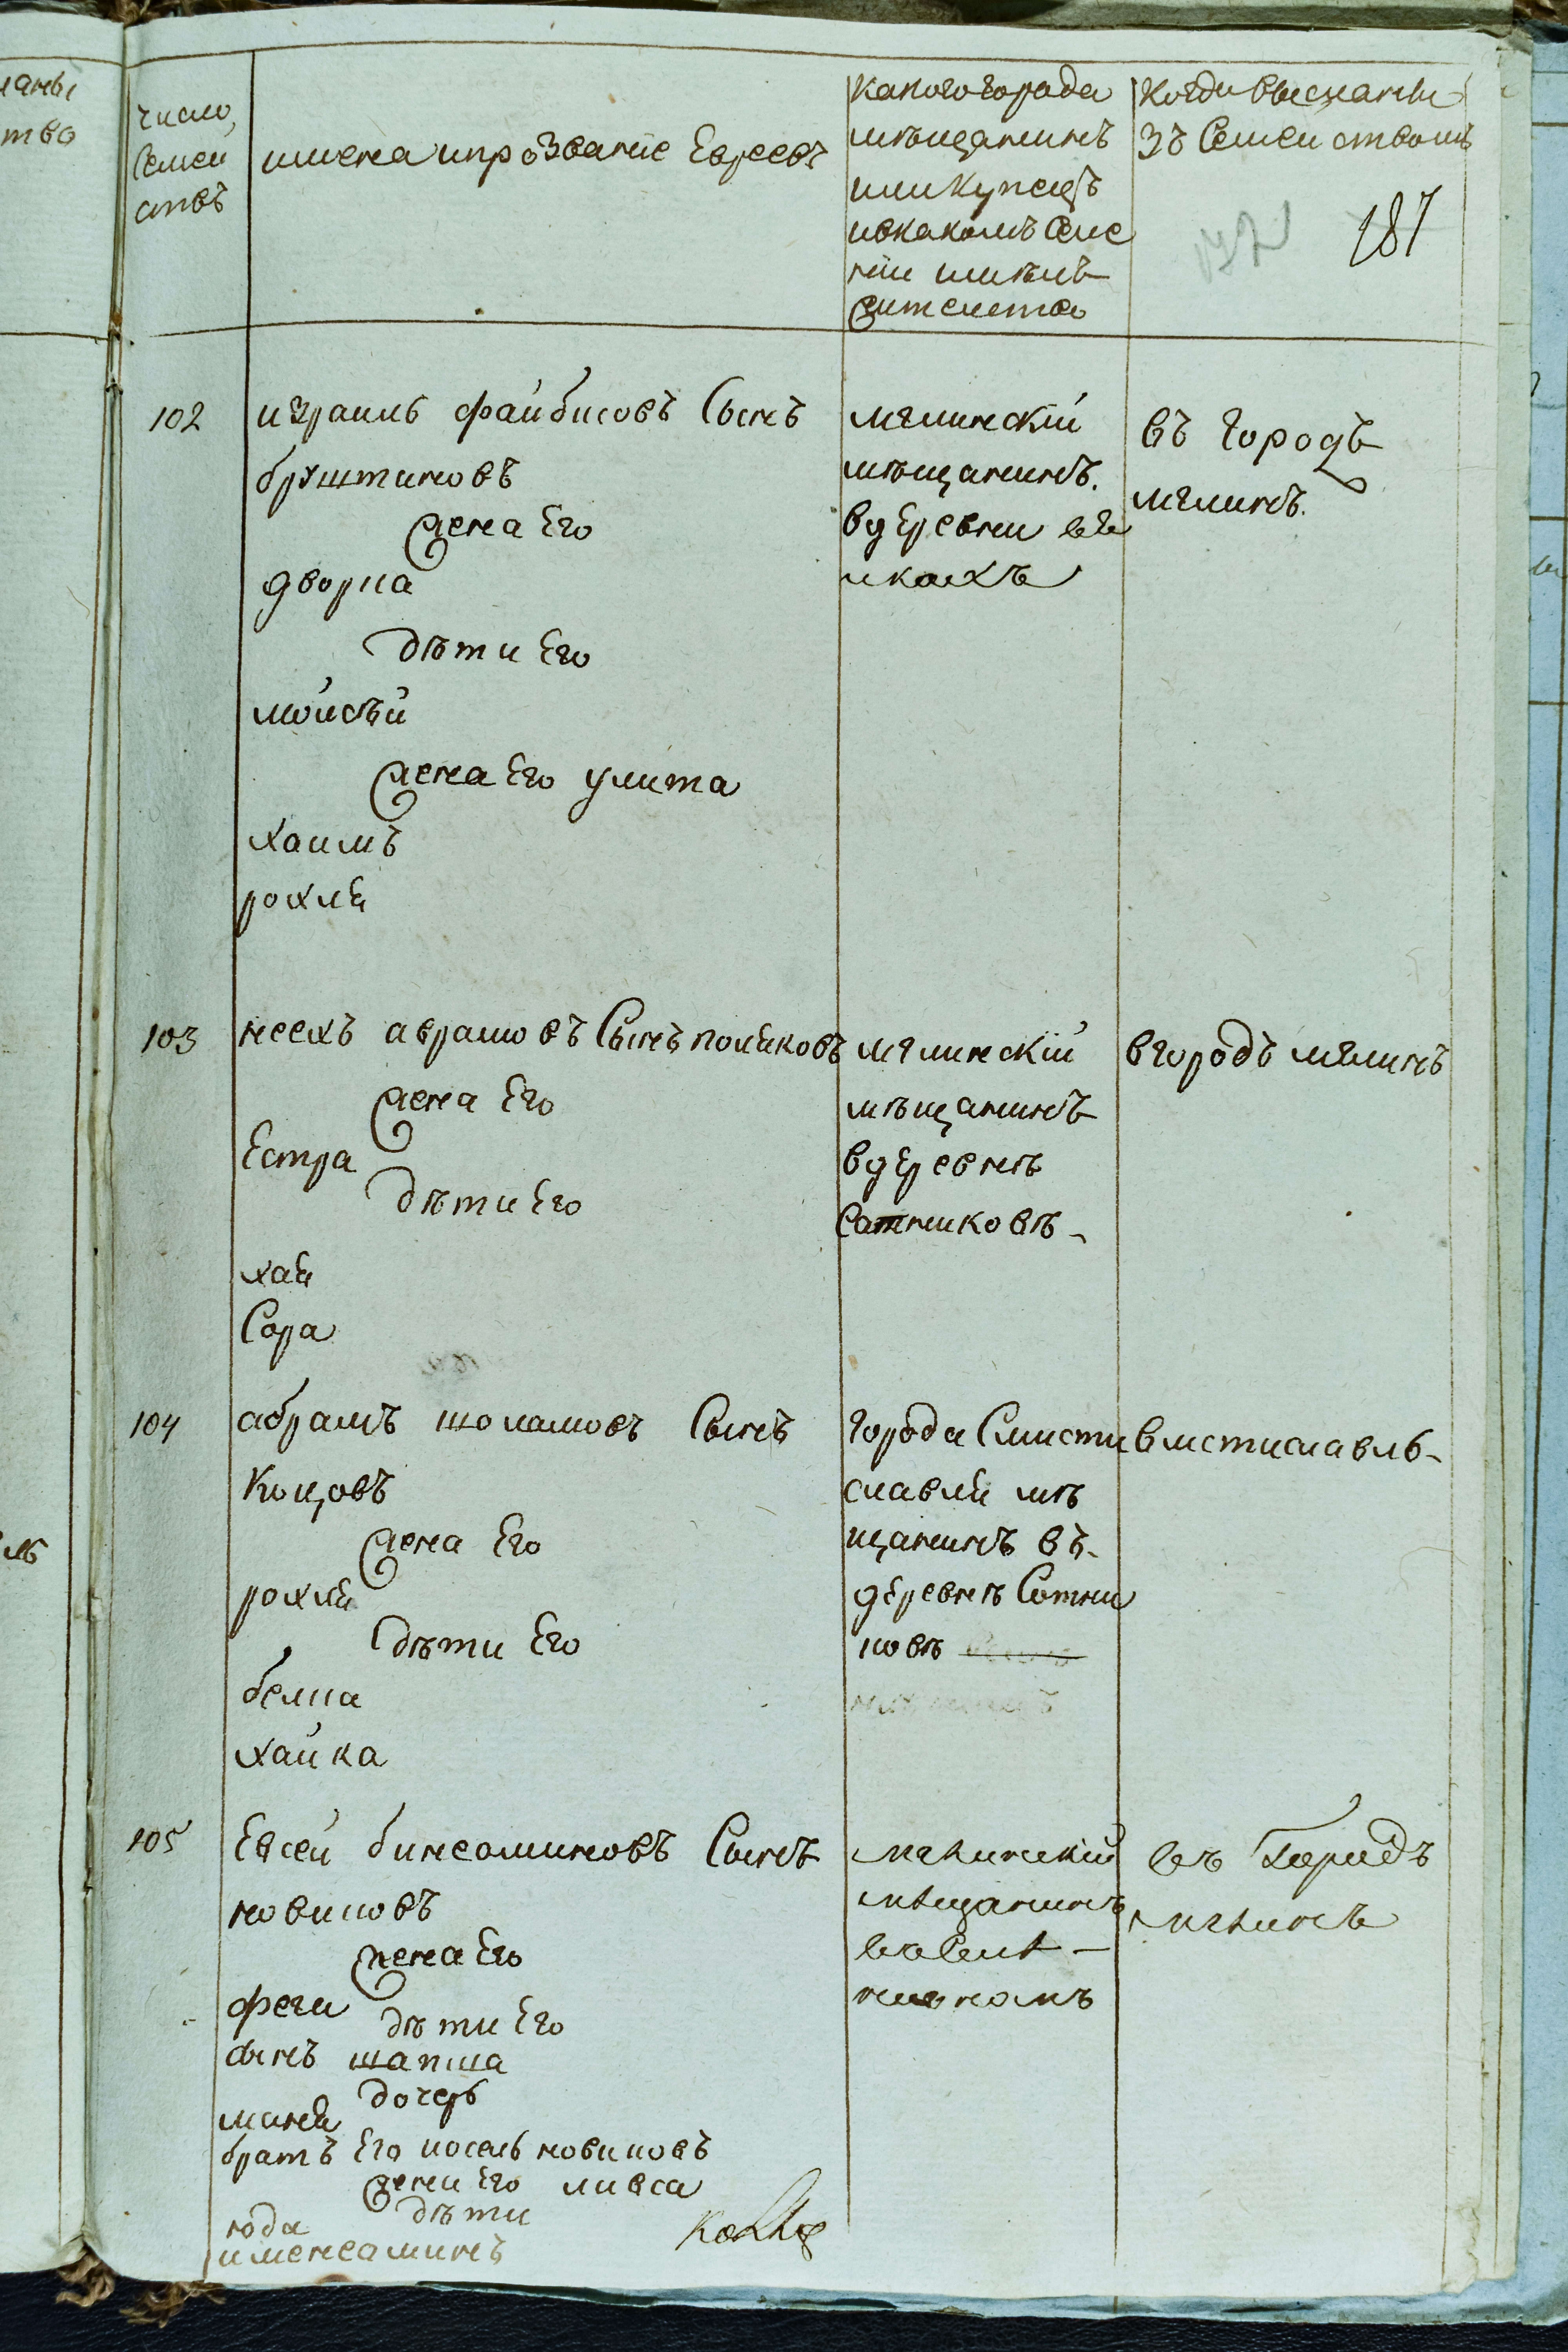 число
семеи
ствъ
имена ипрозваніе Евреевъ
какого города
мѣщанинъ
или купецъ
ивкакомъ селе
ніи имѣлъ
жителство
когда высланы
зъ Семеиствомъ
187
102
израиль фаибисовъ Сынъ
бруштиновъ
жена Его
дворка
дѣти Его
моисѣй
жена Его улита
хаимъ
рохля
мглинскій
мѣщанинъ.
вдЕревни
въ городъ
мглинъ.
103
несехъ аврамовъ Сынъ поляковъ
жена Его
Естра
дѣти Его
хая
Сора
мглинскій
мѣщанинъ
вдЕревнѣ
Сатниковѣ
вгородъ мглинъ
104
абрамъ шоламовъ Сынъ
Коцовъ
жена Его
рохля
дѣти Его
белка
хаика
города Смисти
славля мѣ
щанинъ въ
дЕревнѣ Сотни
ковѣ
вмстиславль
105
Евсеи бинеоминовъ Сынъ
новиковъ
жена Его
феги
дѣти Его
сынъ шапша
дочерь
маня
братъ Его иосель новиковъ
жена Его ливса
дѣти
иода
имененаминъ
мглинскій
мѣщанинъ
въ Городъ
мглинъ